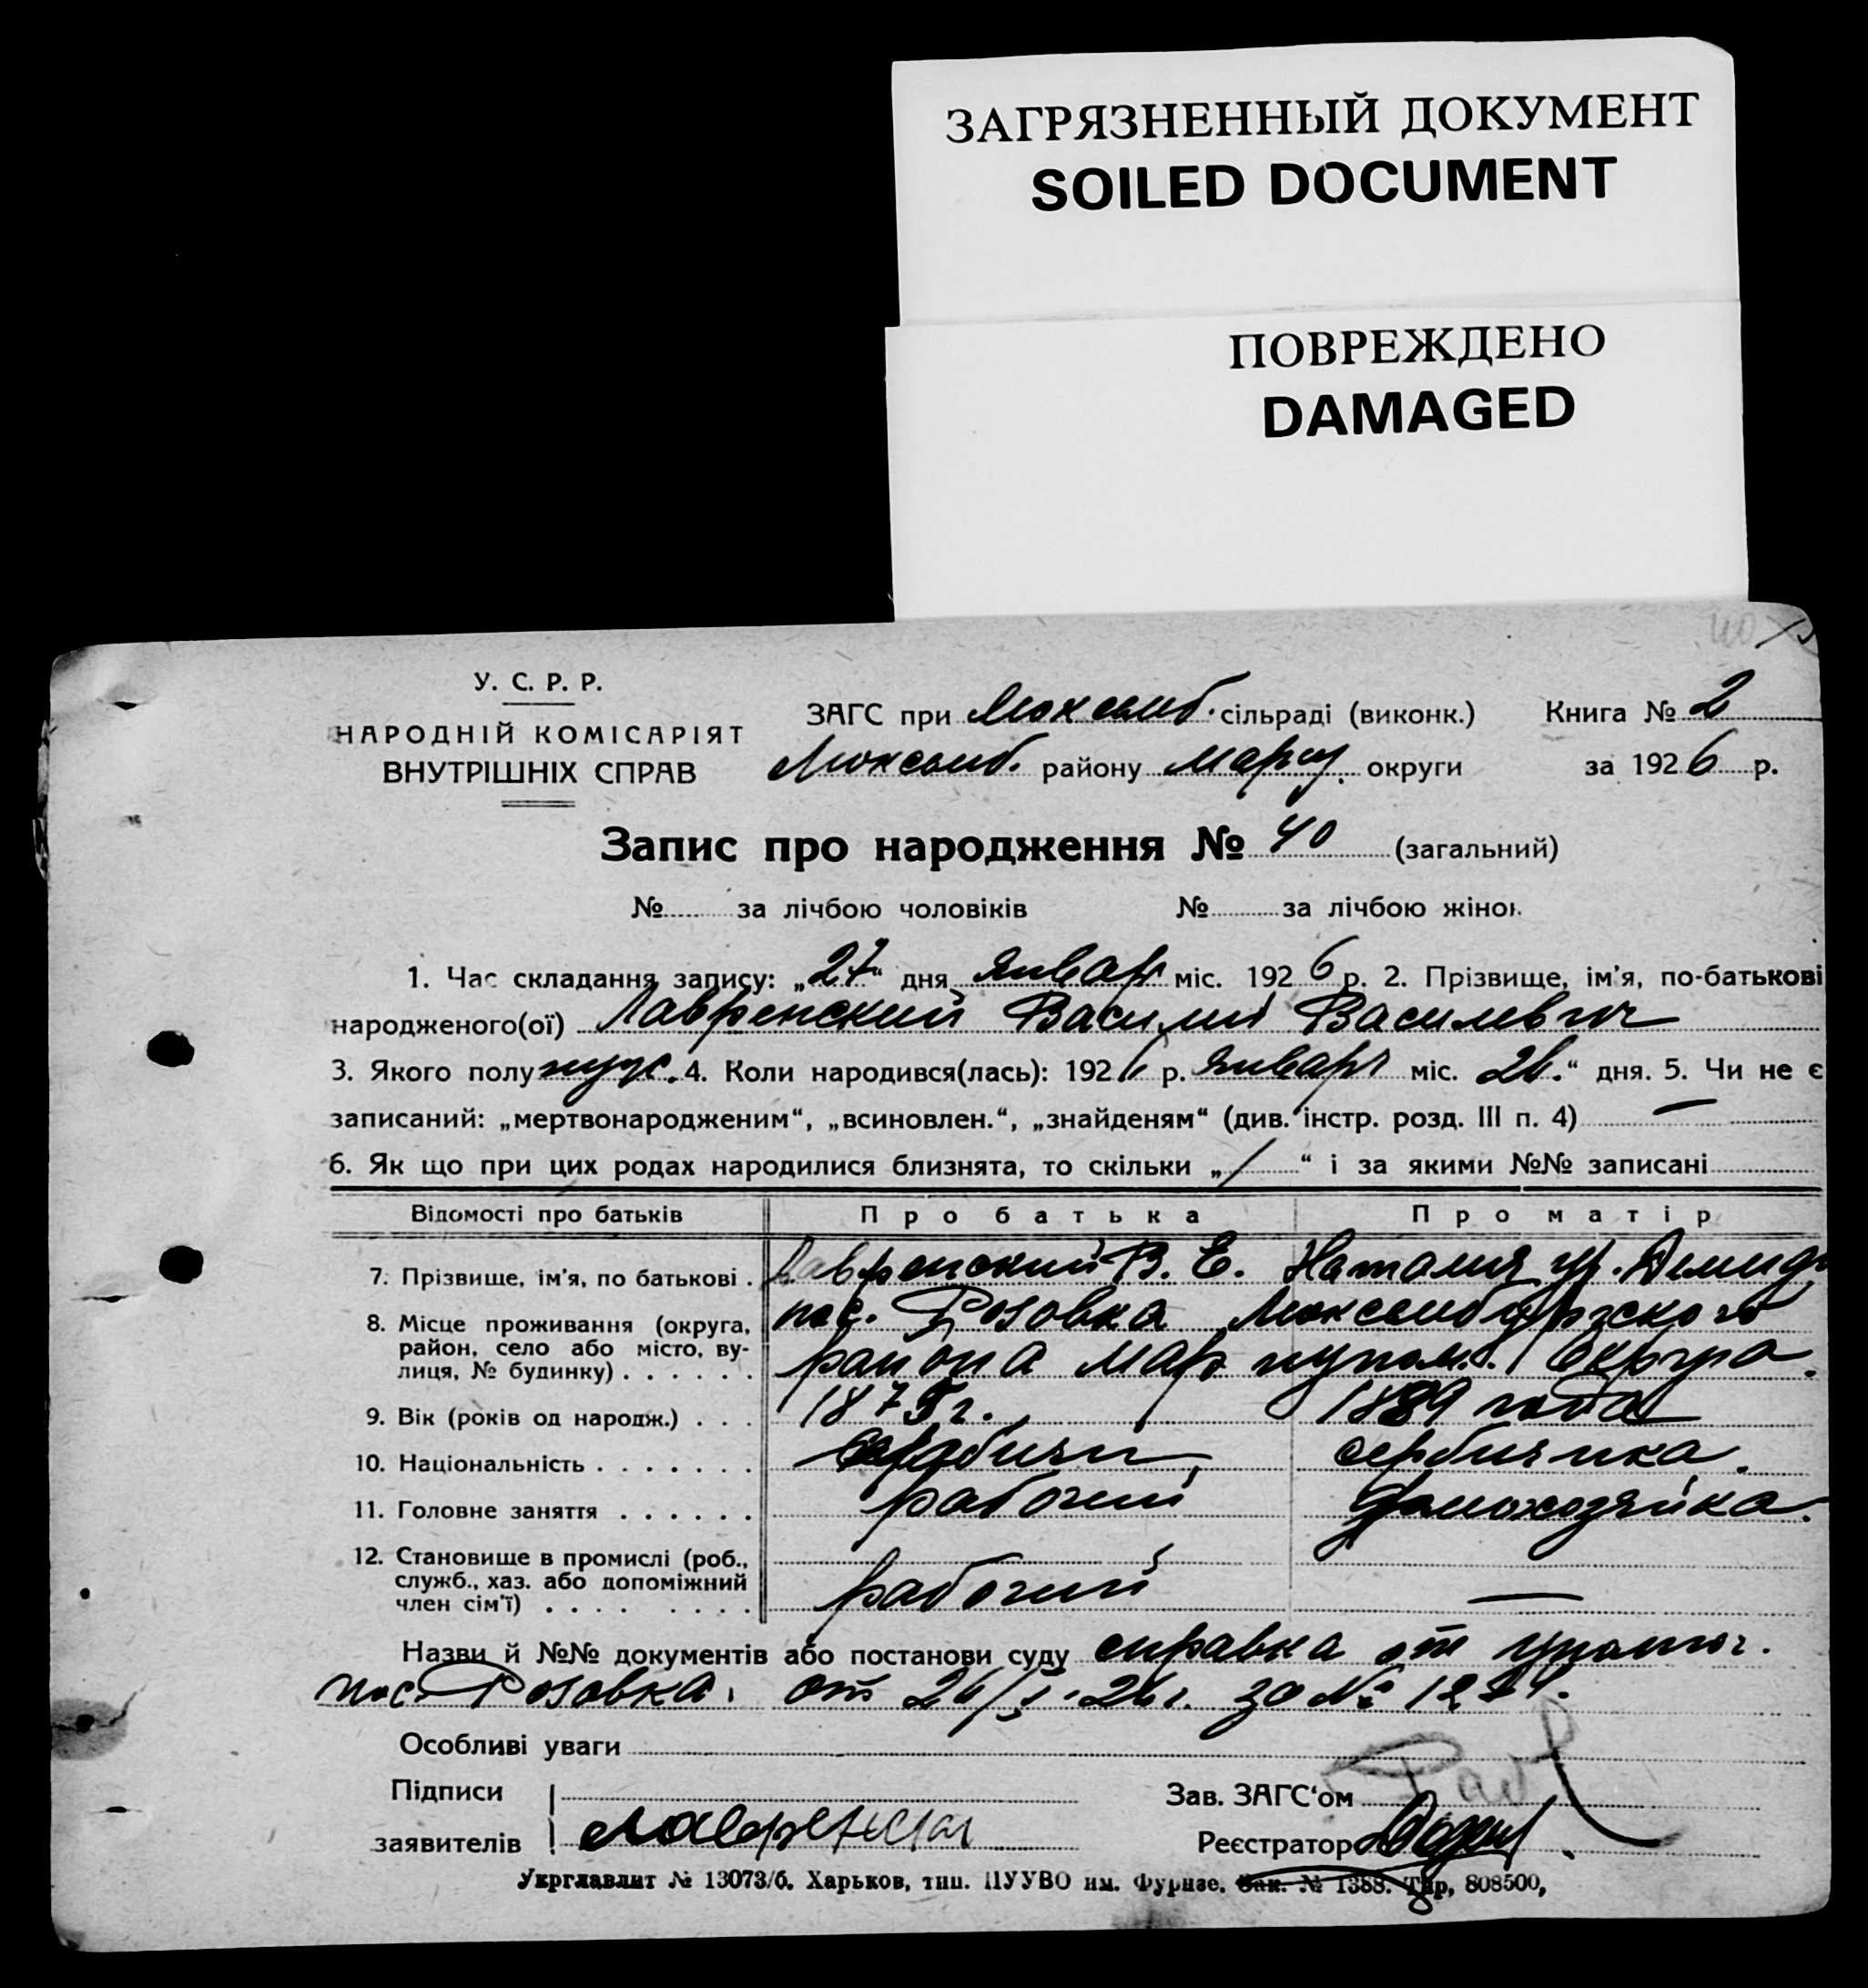 ЗАГРЯЗНЕННЫЙ ДОКУМЕНТ
SOILED DOCUMENT
ПОВРЕЖДЕНО
DAMAGED
У. С. Р. Р.
НАРОДНІЙ КОМІСАРІЯТ
ВНУТРІШНІХ СПРАВ
ЗАГС при Люксемб. сільраді (виконк.) Книга № 2
Люксемб. району Мариу. округи за 1926 р.
Запис про народження № 40 (загальний)
№ за лічбою чоловіків № за лічбою жінок
1. Час складання запису: „27“ дня январ міс. 1926 р. 2. Прізвище, ім'я, по-батькові
народженого(ої) Лавренский Василий Василевич
3. Якого полу муж. 4. Коли народився(лась): 1926 р. январ міс. 26.“ дня. 5. Чи не є
записаний: „мертвонародженим“, „всиновлен.“, „знайденям“ (див. інстр. розд. III п. 4) —
6. Як що при цих родах народилися близнята, то скільки „/“ і за якими №№ записані
Відомості про батьків Про батька Про матір
7. Прізвище, ім'я, по батькові . Лавренский В. Е. Наталия гр. Демид
8. Місце проживання (округа, район, село або місто, вулиця, № будинку) . . . . . . пос. Розовка Люксембургского
района Мариупол. Округа.
9. Вік (років од народж.) . . . 1875 г. 1889 года
10. Національність . . . . . . . сербиянка.
11. Головне заняття . . . . . . рабочий домохозяйка.
12. Становище в промислі (роб., служб., хаз. або допоміжний член сім'ї) . . . . . . . . рабочий —
Назви й №№ документів або постанови суду справка от
пос. Розовка. от 26/I-26 г. за №
Особливі уваги
Підписи
заявителів
Зав. ЗАГС'ом
Реєстратор
Укрглавлит № 13073/б. Харьков, тип. ЦУУВО им. Фрунзе. Зак. № 1388. Тир, 808500,